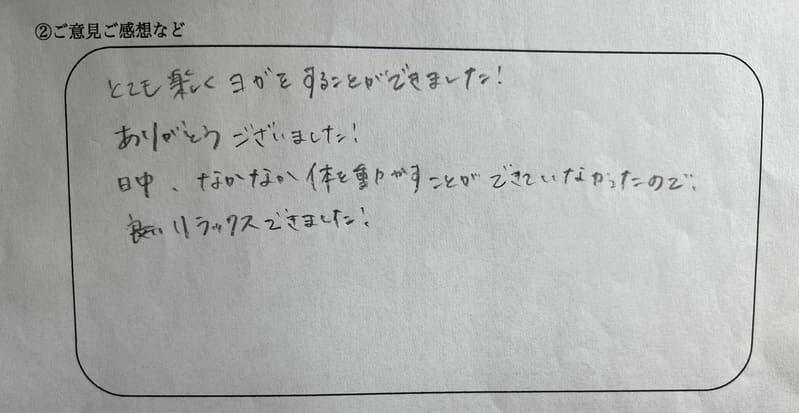 ②ご意見ご感想など
とても楽しくヨガをすることができました!
ありがとうございました!
日中、なかなか体を動かすことができていなかったので、
良いリラックスできました!